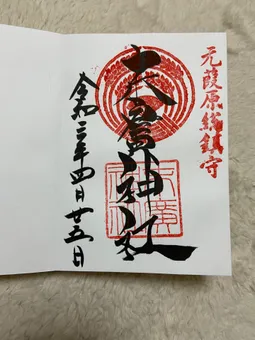 元葭原総鎮守
末廣神社
令和三年四月廿五日